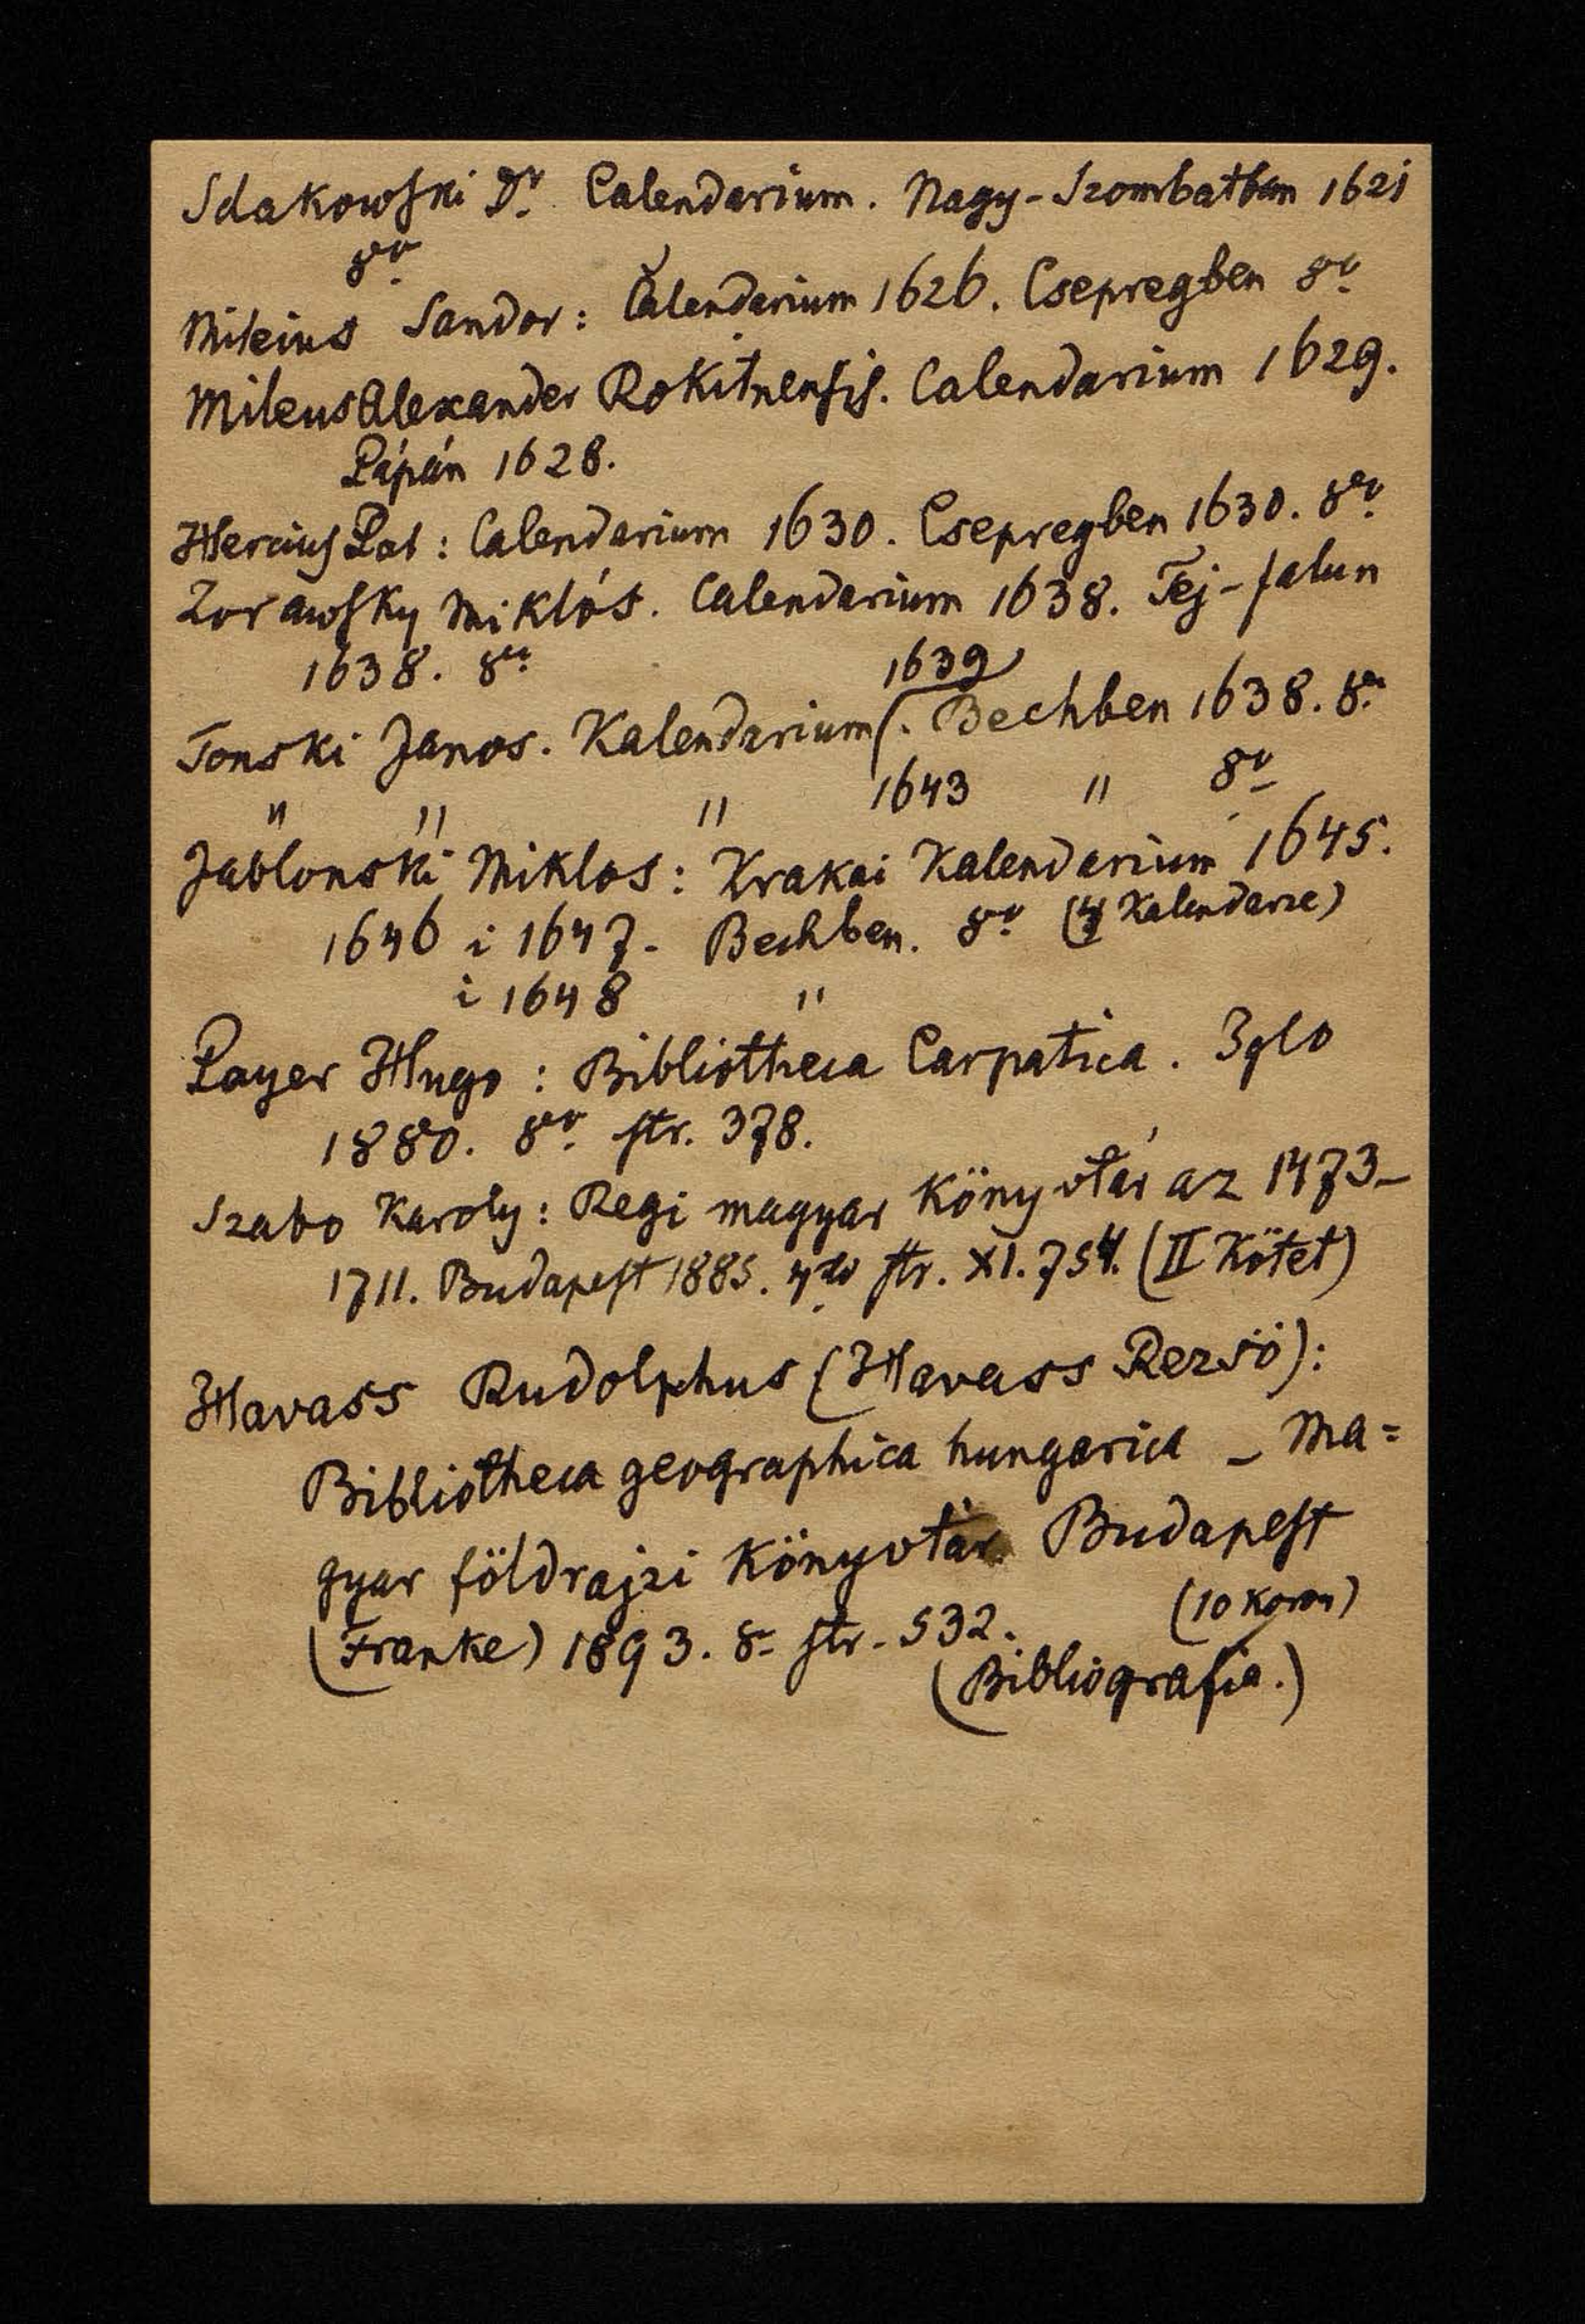 Sdakowski Dr. Calendarium. Nagy-Szombatban 1621
8vo
Mileius Sandor: Calendarium 1626. Csepregben 8vo
Mileus Alexander Rokitnensis. Calendarium 1629.
Pápán 1628.
Hercius Pat: Calendarium 1630. Csepregben 1630. 8vo
Zorawsky Miklós. Calendarium 1638. Tej-falun
1638. 8vo
1639
Tonski Janos. Kalendarium. Bechben 1638. 8vo
" " " 1643 " 8vo
Jablonski Miklos: Krakai Kalendarium 1645.
1646 i 1647. Bechben. 8vo (4 Kalendarze)
i 1648 "
Payer Hugo: Bibliotheca Carpatica. Iglo
1880. 8vo str. 378.
Szabo Karoly: Regi magyar Könyvtár az 1473–
1711. Budapest 1885. 4to str. XI. 754. (II Kötet)
Havass Rudolphus (Havass Rezsö):
Bibliotheca geographica hungarica – Ma=
gyar földrajzi Könyvtár Budapest
(Franke) 1893. 8o str. 532. (10 Koron)
(Bibliografia.)